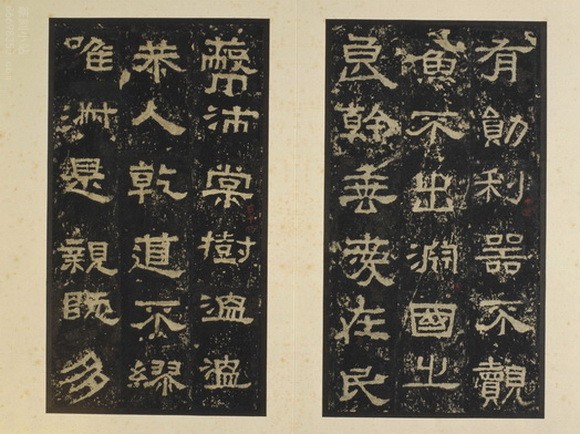 有勛利器不覿
魚不出淵國之
良幹垂愛在民
幣沛棠樹溫溫
恭人乾道不繆
唯淑是親既多